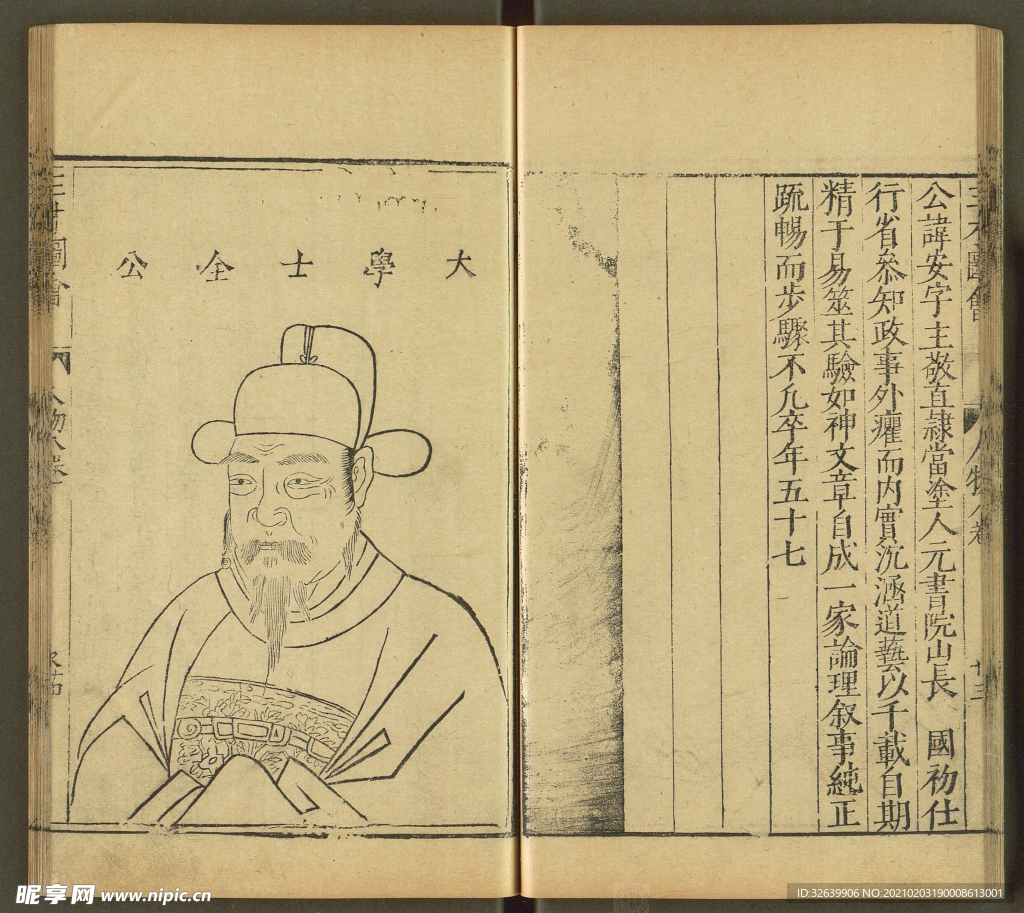 三才圖會
人物八卷
廿三
公諱安字主敬直隷當塗人元書院山長　國初仕
行省叅知政事外癯而内實沉涵道藝以千載自期
精于易筮其驗如神文章自成一家論理叙事純正
疏暢而步驟不凢卒年五十七
大學士全公
三才圖會
人物八卷
昵享网 www.nipic.cn
ID:32639906 NO:20210203190008613001